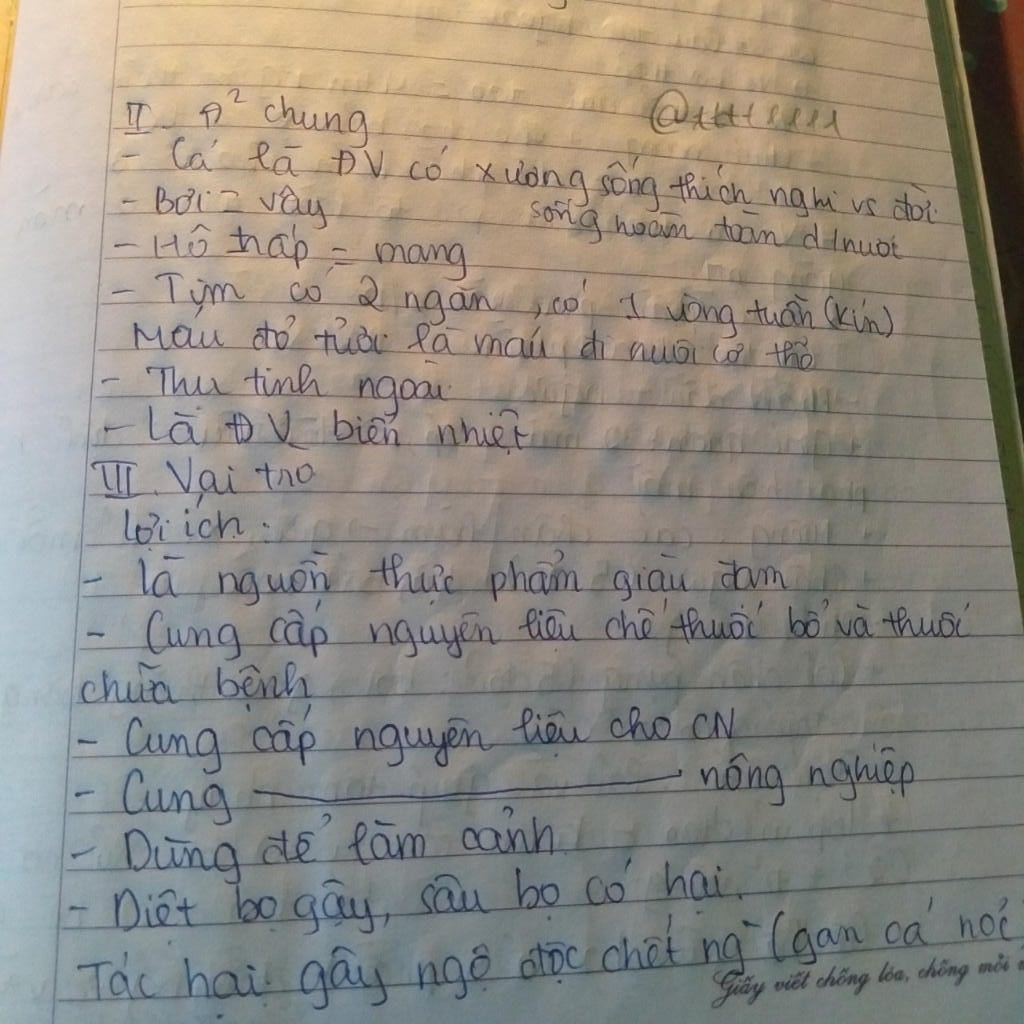 II. Đ² chung
- Cá là ĐV có xương sống thích nghi vs đời
sống hoàn toàn d/nuoi
- Bơi = vây
- Hô hấp = mang
- Tim có 2 ngăn, có 1 vòng tuần (kín)
Máu đỏ tươi là máu đi nuôi cơ thể
- Thu tinh ngoài
- Là ĐV biến nhiệt
III. Vai tro
Lợi ích:
- là nguồn thực phẩm giàu đam
- Cung cấp nguyên liệu chế thuốc bổ và thuốc
chữa bệnh
- Cung cấp nguyên liệu cho CN
- Cung ——— nông nghiệp
- Dùng để làm cảnh
- Diệt bọ gậy, sâu bọ có hại.
Tác hại: gây ngộ độc chết ng` (gan cá nóc
Giấy viết chống lóa, chống mỏi